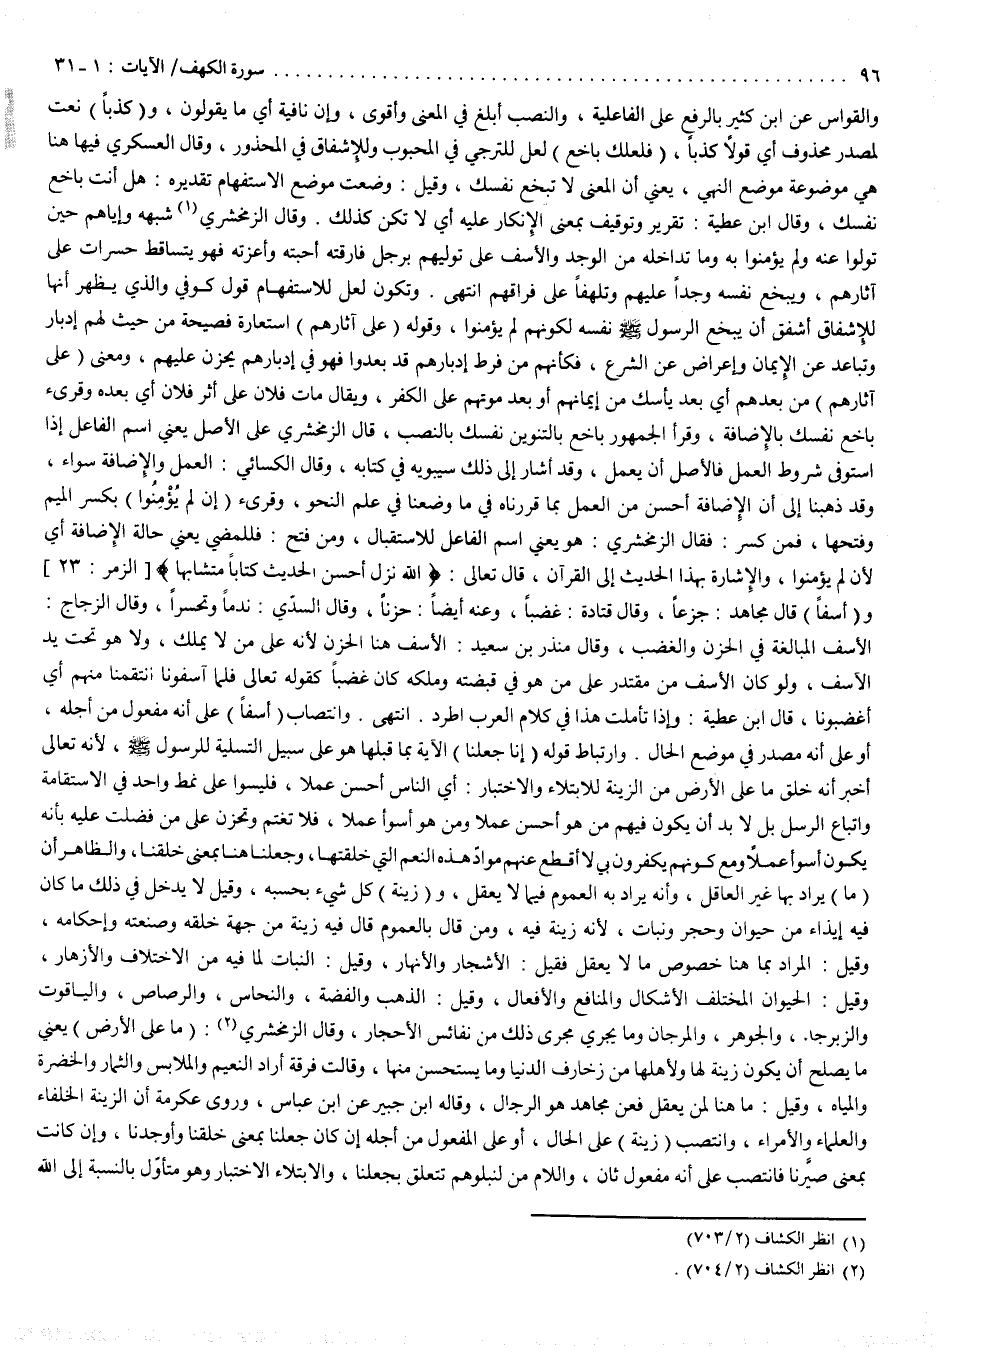 ٩٦ ........................................................ سورة الكهف/ الآيات : ١ - ٣١
والقواس عن ابن كثير بالرفع على الفاعلية ، والنصب أبلغ في المعنى وأقوى ، وإن نافية أي ما يقولون ، و( كذباً ) نعت
لمصدر محذوف أي قولاً كذباً ، ( فلعلك باخع ) لعل للترجي في المحبوب وللإشفاق في المحذور ، وقال العسكري فيها هنا
هي موضوعة موضع النهي ، يعني أن المعنى لا تبخع نفسك ، وقيل : وضعت موضع الاستفهام تقديره : هل أنت باخع
نفسك ، وقال ابن عطية : تقرير وتوقيف بمعنى الإنكار عليه أي لا تكن كذلك . وقال الزمخشري(١) شبهه وإياهم حين
تولوا عنه ولم يؤمنوا به وما تداخله من الوجد والأسف على توليهم برجل فارقته أحبته وأعزته فهو يتساقط حسرات على
آثارهم ، ويبخع نفسه وجداً عليهم وتلهفاً على فراقهم انتهى . وتكون لعل للاستفهام قول كوفي والذي يظهر أنها
للإشفاق أشفق أن يبخع الرسول ﷺ نفسه لكونهم لم يؤمنوا ، وقوله ( على آثارهم ) استعارة فصيحة من حيث لهم إدبار
وتباعد عن الإيمان وإعراض عن الشرع ، فكأنهم من فرط إدبارهم قد بعدوا فهو في إدبارهم يحزن عليهم ، ومعنى ( على
آثارهم ) من بعدهم أي بعد يأسك من إيمانهم أو بعد موتهم على الكفر ، ويقال مات فلان على أثر فلان أي بعده وقرىء
باخع نفسك بالإضافة ، وقرأ الجمهور باخع بالتنوين نفسك بالنصب ، قال الزمخشري على الأصل يعني اسم الفاعل إذا
استوفى شروط العمل فالأصل أن يعمل ، وقد أشار إلى ذلك سيبويه في كتابه ، وقال الكسائي : العمل والإضافة سواء ،
وقد ذهبنا إلى أن الإضافة أحسن من العمل بما قررناه في ما وضعنا في علم النحو ، وقرىء ( إن لم يُؤْمِنُوا ) بكسر الميم
وفتحها ، فمن كسر : فقال الزمخشري : هو يعني اسم الفاعل للاستقبال ، ومن فتح : فللمضي يعني حالة الإضافة أي
لأن لم يؤمنوا ، والإشارة بهذا الحديث إلى القرآن ، قال تعالى : ﴿ الله نزل أحسن الحديث كتاباً متشابها ﴾ [ الزمر : ٢٣ ]
و( أسفاً ) قال مجاهد : جزعاً ، وقال قتادة : غضباً ، وعنه أيضاً : حزناً ، وقال السدّي : ندماً وتحسراً ، وقال الزجاج :
الأسف المبالغة في الحزن والغضب ، وقال منذر بن سعيد : الأسف هنا الحزن لأنه على من لا يملك ، ولا هو تحت يد
الآسف ، ولو كان الأسف من مقتدر على من هو في قبضته وملكه كان غضباً كقوله تعالى فلما آسفونا انتقمنا منهم أي
أغضبونا ، قال ابن عطية : وإذا تأملت هذا في كلام العرب اطرد . انتهى . وانتصاب( أسفاً ) على أنه مفعول من أجله ،
أو على أنه مصدر في موضع الحال . وارتباط قوله ( إنا جعلنا ) الآية بما قبلها هو على سبيل التسلية للرسول ﷺ ، لأنه تعالى
أخبر أنه خلق ما على الأرض من الزينة للابتلاء والاختبار : أي الناس أحسن عملا ، فليسوا على نمط واحد في الاستقامة
واتباع الرسل بل لا بد أن يكون فيهم من هو أحسن عملا ومن هو أسوأ عملا ، فلا تغتم وتحزن على من فضلت عليه بأنه
يكون أسوأ عملاً ومع كونهم يكفرون بي لا أقطع عنهم موادّ هذه النعم التي خلقتها ، وجعلنا هنا بمعنى خلقنا ، والظاهر أن
( ما ) يراد بها غير العاقل ، وأنه يراد به العموم فيما لا يعقل ، و( زينة ) كل شيء بحسبه ، وقيل لا يدخل في ذلك ما كان
فيه إيذاء من حيوان وحجر ونبات ، لأنه زينة فيه ، ومن قال بالعموم قال فيه زينة من جهة خلقه وصنعته وإحكامه ،
وقيل : المراد بما هنا خصوص ما لا يعقل فقيل : الأشجار والأنهار ، وقيل : النبات لما فيه من الاختلاف والأزهار ،
وقيل : الحيوان المختلف الأشكال والمنافع والأفعال ، وقيل : الذهب والفضة ، والنحاس ، والرصاص ، والياقوت
والزبرجد ، والجوهر ، والمرجان وما يجري مجرى ذلك من نفائس الأحجار ، وقال الزمخشري(٢) : ( ما على الأرض ) يعني
ما يصلح أن يكون زينة لها ولأهلها من زخارف الدنيا وما يستحسن منها ، وقالت فرقة أراد النعيم والملابس والثمار والخضرة
والمياه ، وقيل : ما هنا لمن يعقل فعن مجاهد هو الرجال ، وقاله ابن جبير عن ابن عباس ، وروى عكرمة أن الزينة الخلفاء
والعلماء والأمراء ، وانتصب ( زينة ) على الحال ، أو على المفعول من أجله إن كان جعلنا بمعنى خلقنا وأوجدنا ، وإن كانت
بمعنى صيَّرنا فانتصب على أنه مفعول ثان ، واللام من لنبلوهم تتعلق بجعلنا ، والابتلاء الاختبار وهو متأوّل بالنسبة إلى الله
(١) انظر الكشاف (٧٠٣/٢)
(٢) انظر الكشاف (٧٠٤/٢) .